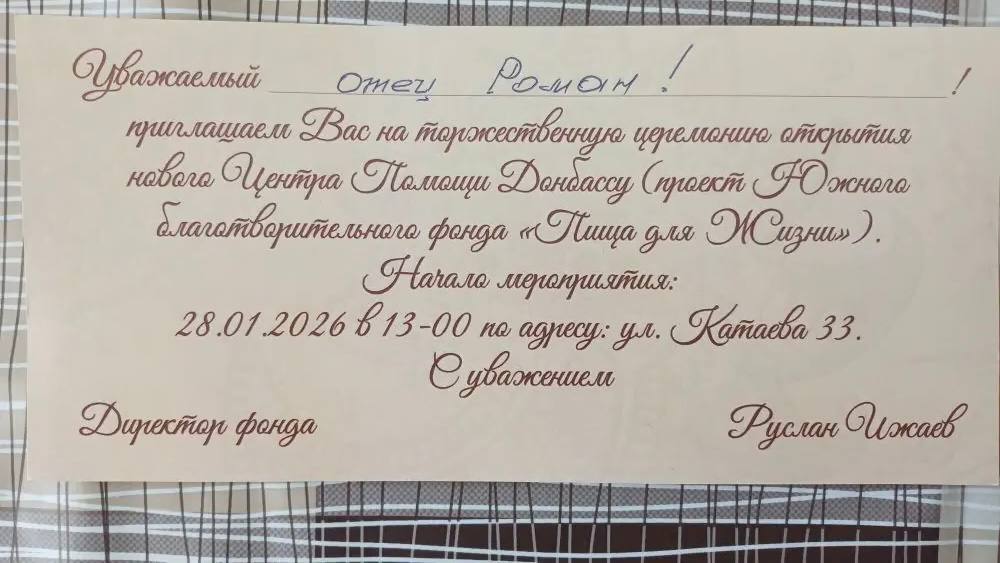 Уважаемый отец Роман! !
приглашаем Вас на торжественную церемонию открытия
нового Центра Помощи Донбассу (проект Южного
благотворительного фонда «Пища для Жизни»).
Начало мероприятия:
28.01.2026 в 13-00 по адресу: ул. Катаева 33.
С уважением
Директор фонда Руслан Ижаев